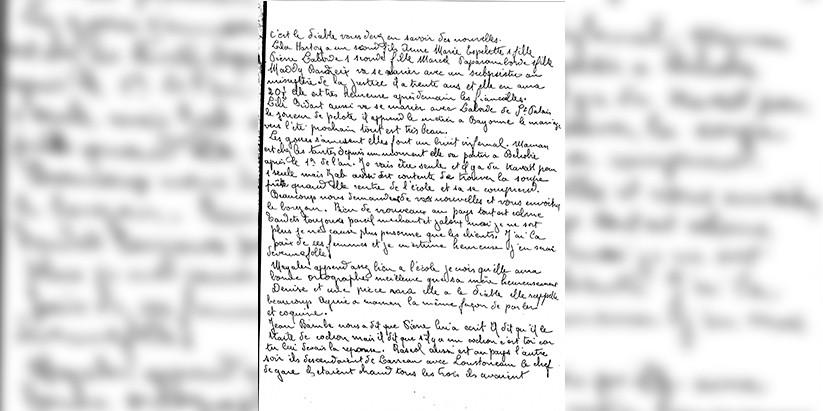 c'est le diable vous devez en savoir des nouvelles.
un second fils Jeune Marie Espelette 1 fille
Pierre Laborde 1 seconde fille Marcel fille
Maddy va se marier avec un au
ministère de la justice il a trente ans et elle en aura
20 elle est très heureuse après demain les fiancailles.
Lili Bidart aussi va se marier avec Laborde de St Palais
le joueur de pelote il apprend le métier a Bayonne le mariage
vers l'été prochain tout est très beau.
Les gosses s'amusent elles font un bruit infernal. Maman
est chez les tantes depuis un moment elle va partir a Behobie
après le 1r de l'an. Je vais être seule et il y a du travail pour
1 seule mais aussi est contente de trouver la soupe
prête quand elle rentre de l'école et sa se comprend.
Beaucoup nous demandes de vos nouvelles et vous envoies
le bonjour. Rien de nouveaux au pays tout est calme
toujours pareil méchant et jaloux moi je ne sort
plus je ne cause plus personne que les clients. J'ai la
paix de ces femmes et je m'estime heureuse j'en suis
devenue folle.
Mayalen apprend assez bien a l'école je vois qu'elle aura
bonne ortographe meilleure que sa mère heureusement
Denise et une pièce rare elle a le diable elle rappelle
beaucoup a maman la même façon de parler
et coquine.
Jean nous a dit que Pierre lui a écrit Il dit qu'il le
traite de cochon mais il dit que s'il y a un cochon c'est toi car
tu lui devais la réponse. Pascal aussi est au pays l'autre
soir ils descendaient de avec le chef
de gare ils étaient chaud tous les trois ils avaient